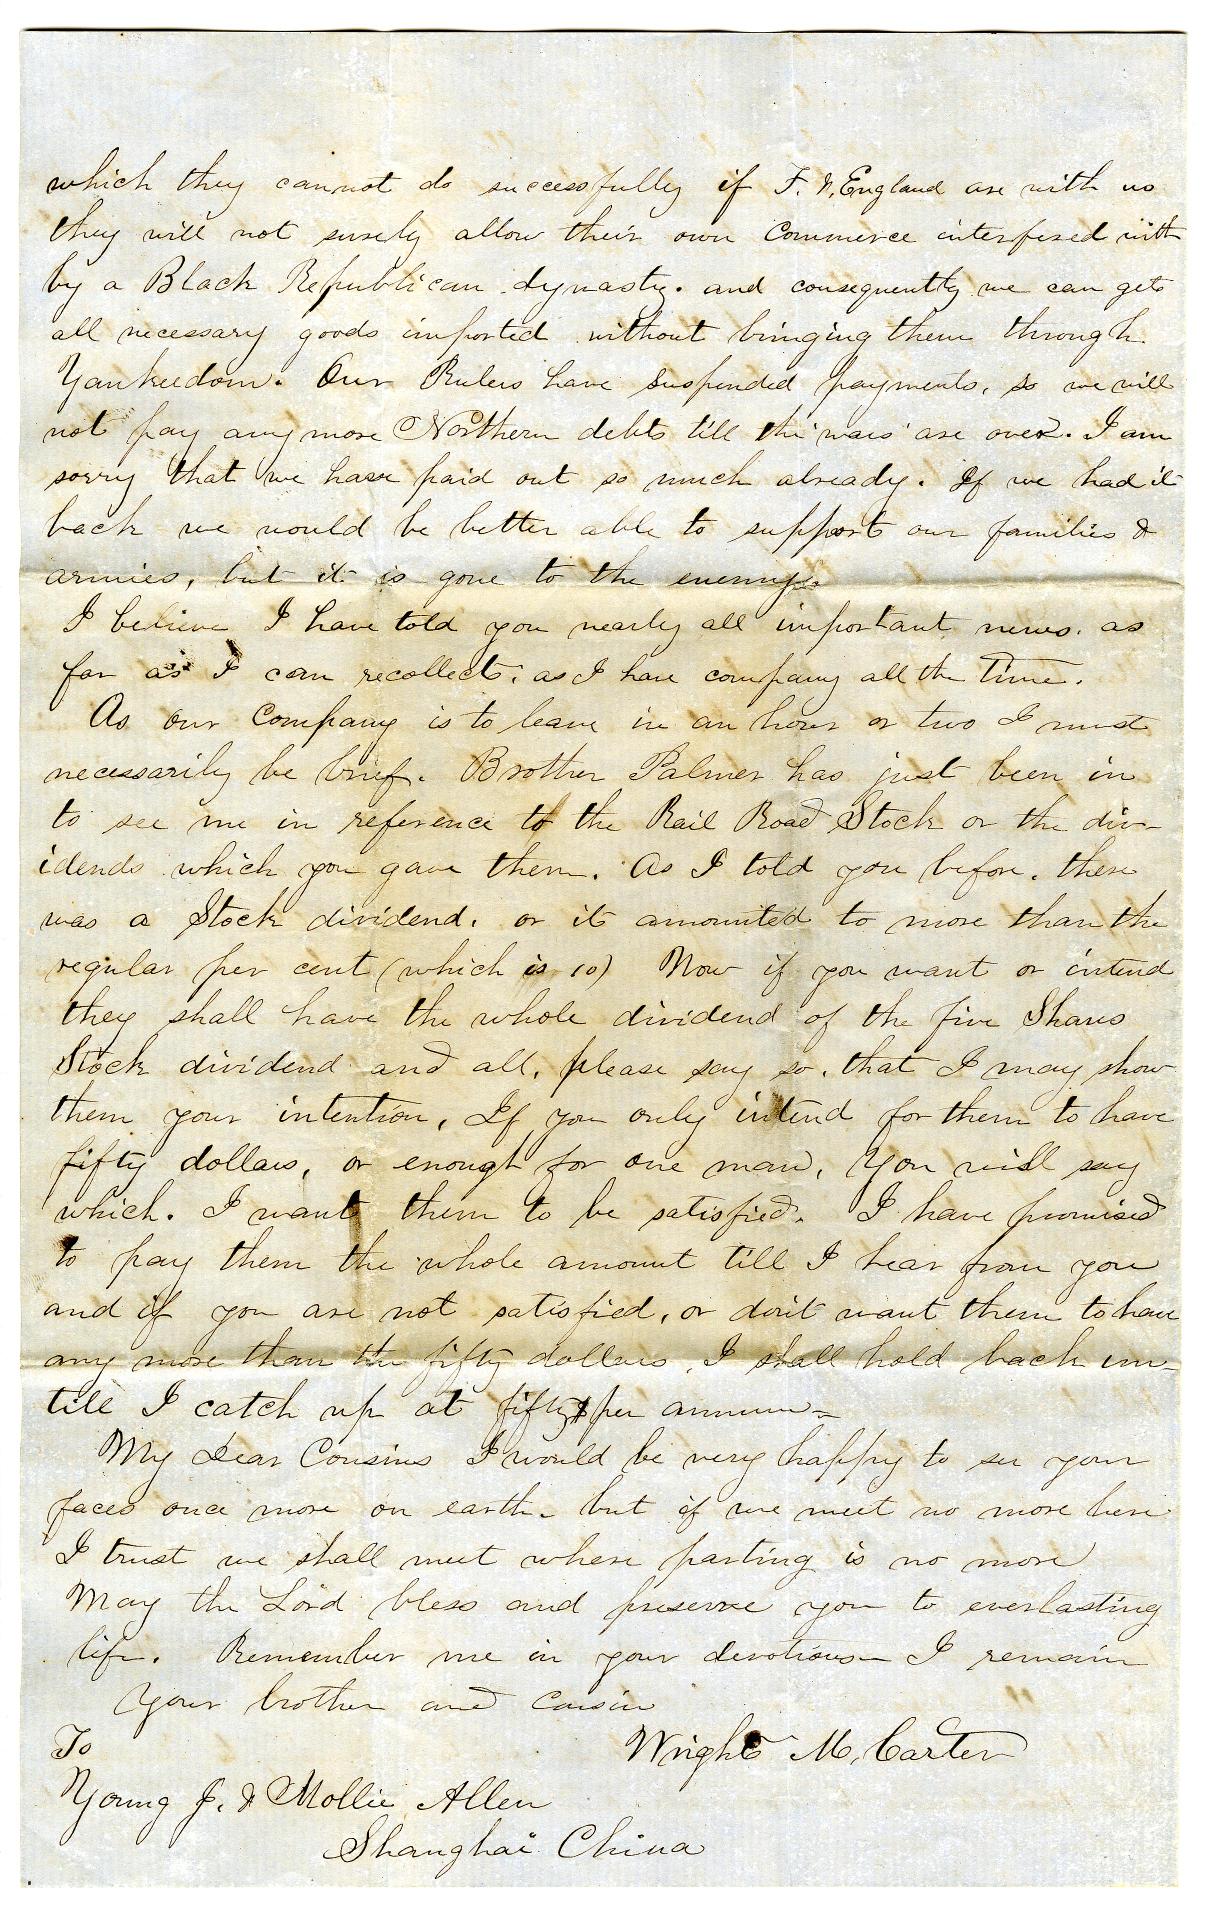 which they cannot do successfully if F. & England are with us
they will not surely allow their own Commerce interfered with
by a Black Republican dynasty. and consequently we can get
all necessary goods imported without bringing them through
Yankeedom. Our Rulers have suspended payments, so we will
not pay any more Northern debts till the wars are over. I am
sorry that we have paid out so much already. If we had it
back we would be better able to support our families &
armies, but it is gone to the enemy.
I believe I have told you nearly all important news. as
far as I can recollect. as I have company all the time.
As our Company is to leave in an hour or two I must
necessarily be brief. Brother Palmer has just been in
to see me in reference to the Rail Road Stock or the div-
idends which you gave them. As I told you before, there
was a Stock dividend, or it amounted to more than the
regular per cent (which is 10) Now if you want or intend
they shall have the whole dividend of the five Shares
Stock dividend and all, please say so, that I may show
them your intention, If you only intend for them to have
fifty dollars, or enough for one man, you will say
which. I want them to be satisfied. I have promised
to pay them the whole amount till I hear from you
and if you are not satisfied, or don't want them to have
any more than the fifty dollars, I shall hold back un-
till I catch up at fifty $ per annum-
My Dear Cousins I would be very happy to see your
faces once more on earth. but if we meet no more here
I trust we shall meet where parting is no more
May the Lord bless and preserve you to everlasting
life. Remember me in your devotions- I remain
Your brother and cousin
Wright M. Carter
To
Young J. & Mollie Allen
Shanghai China